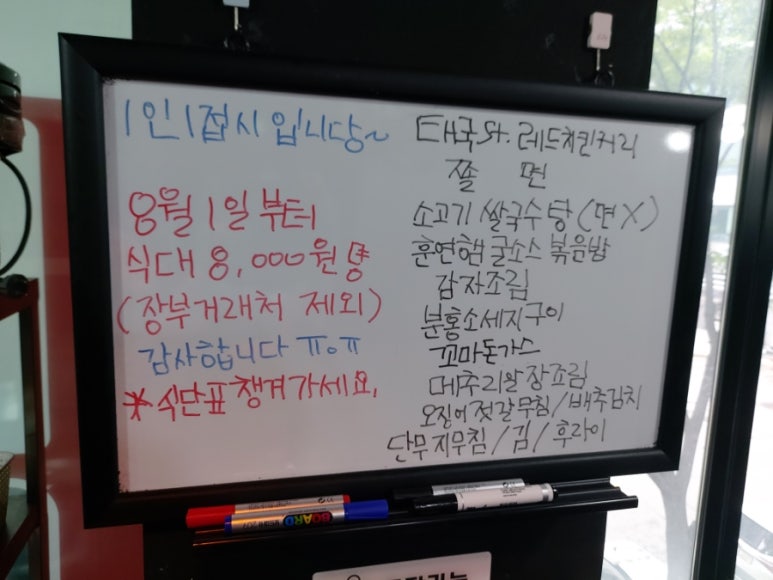 1인 1접시 입니당~
8월 1일 부터
식대 8,000원 명
(장부거래처 제외)
감사합니다 ㅠㅇㅠ
*식단표 챙겨가세요.
태국식. 레드치킨커리
쫄 면
소고기 쌀국수탕 (면X)
훈연햄 굴소스 볶음밥
감자조림
분홍소세지구이
꼬마돈가스
메추리알 장조림
오징어젓갈무침/배추김치
단무지무침/김/후라이
BOARD